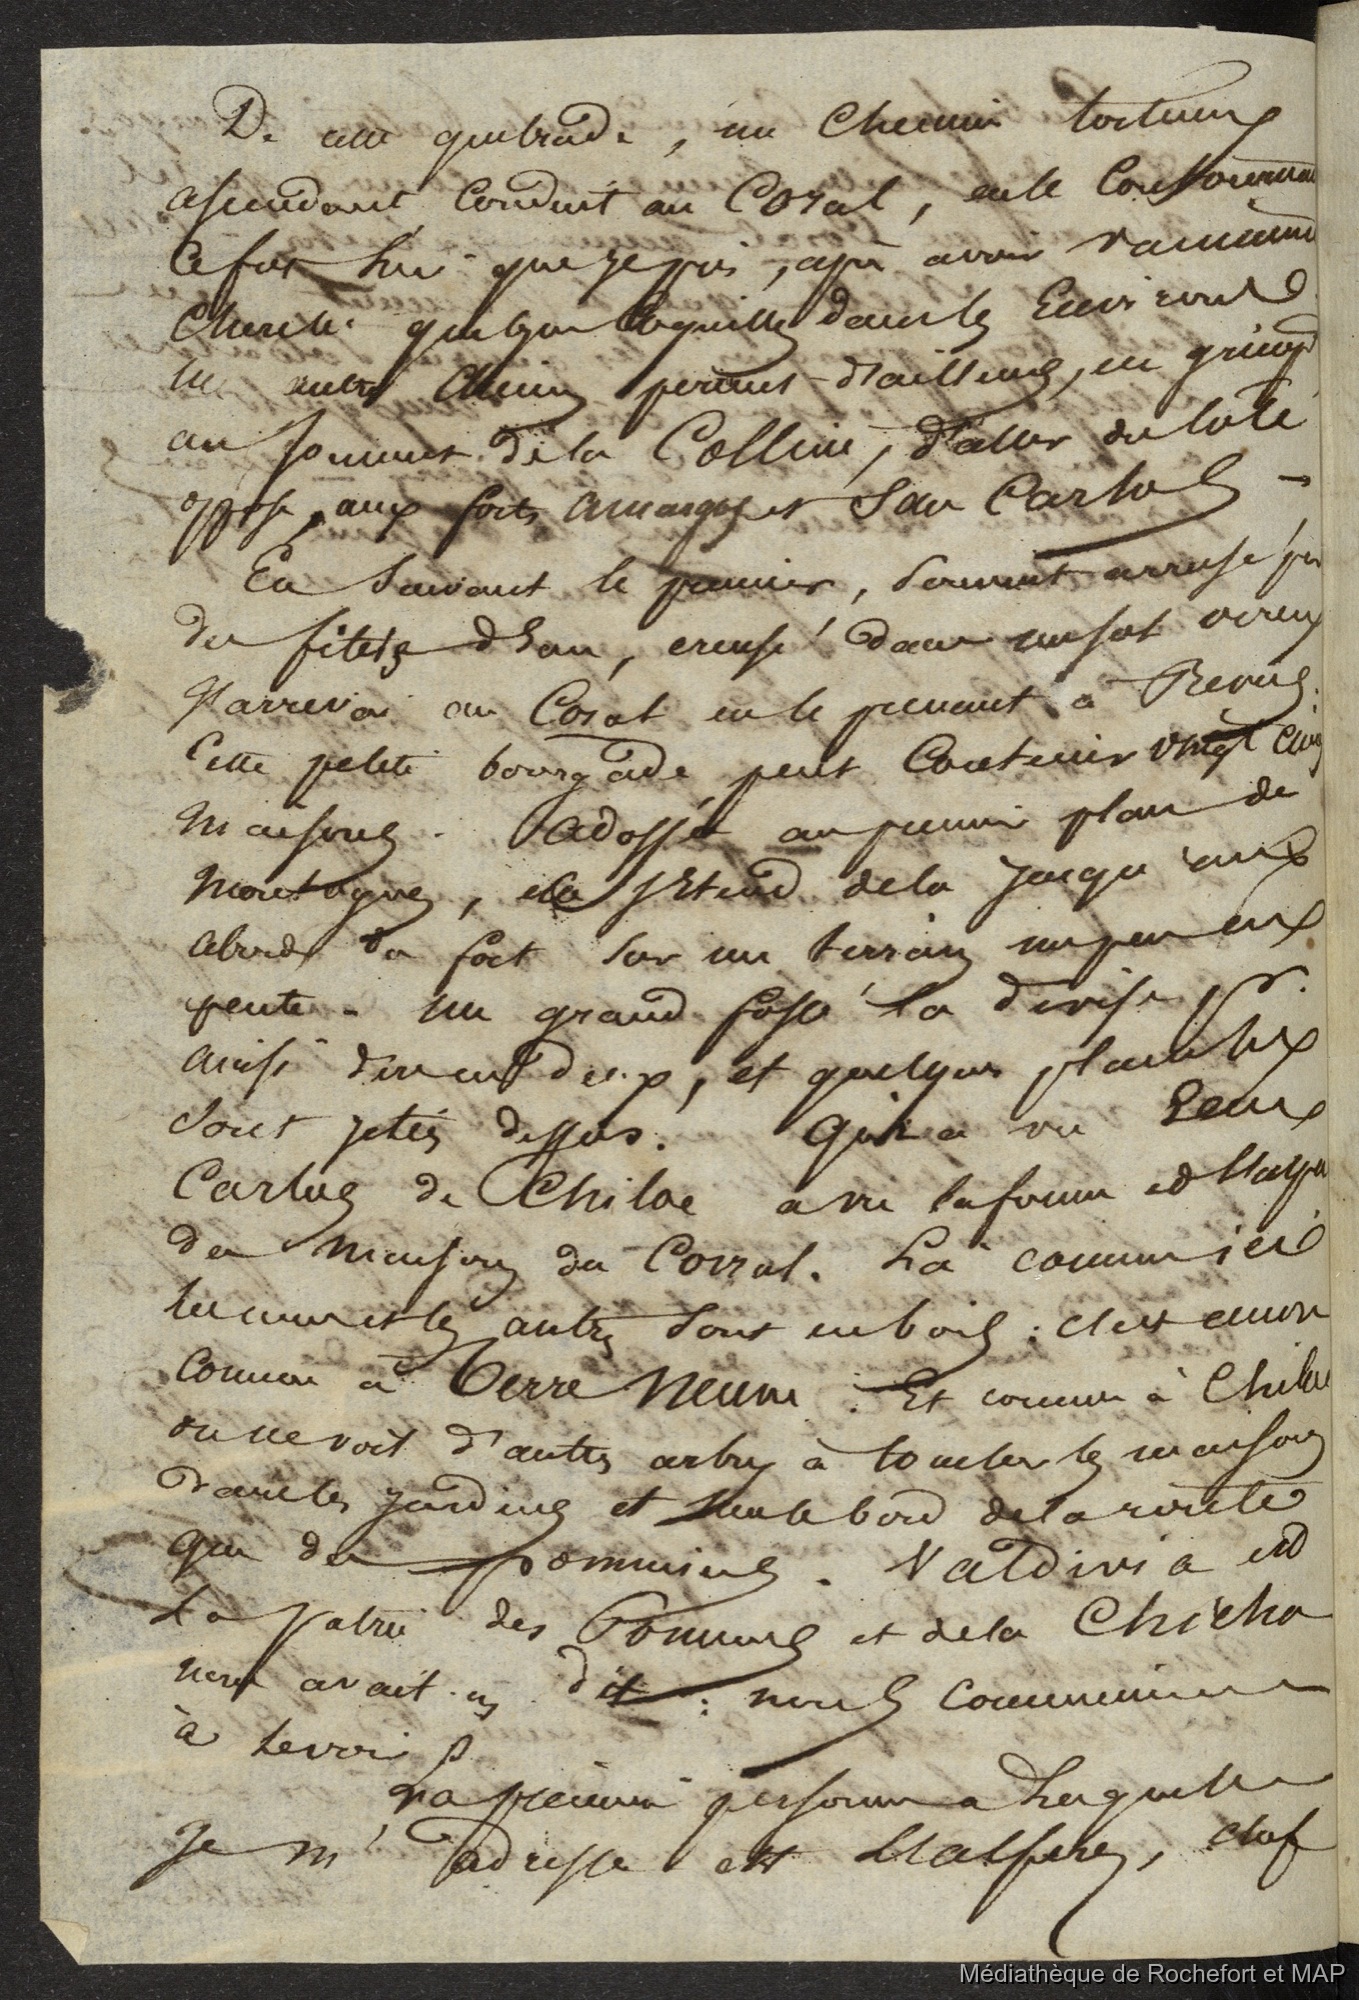 De cette quebrade, un chemin tortueux
ascendant conduit au Coral, en le contournant
ce fut lui que je pris, après avoir vainement
cherché quelques coquilles dans les environs
un autre chemin permet d'ailleurs, en grimpant
au sommet de la Colline, d'aller du côté
opposé, aux forts amargos et San Carlos
En suivant le premier, souvent arrosé par
des filets d'eau, creusé dans un sol
j'arrivai au Coral en le prenant à Revers.
Cette petite bourgade peut contenir vingt cinq
maisons. adossée au premier plan de
montagnes, elle s'étend de la jusqu'aux
abords du fort sur un terrain un peu en
pente. un grand fossé la divise pr.
ainsi dire en deux, et quelques planches
sont jetées dessus. Qui a vu San
Carlos de Chiloe a vu la forme et
des maisons du Corral. Là comme ici
les unes et les autres sont en bois : c'est encore
comme à Terre Neuve. Et comme à Chiloe
on ne voit d'autres arbres à toucher les maisons
dans les jardins et sur le bord de la route
que des pommiers. Valdivia est
La patrie des Pommes et de la Chicha
nous avait-on dit : nous commencions
à le voir
La première personne à laquelle
Je m'adresse est , chef
Médiathèque de Rochefort et MAP